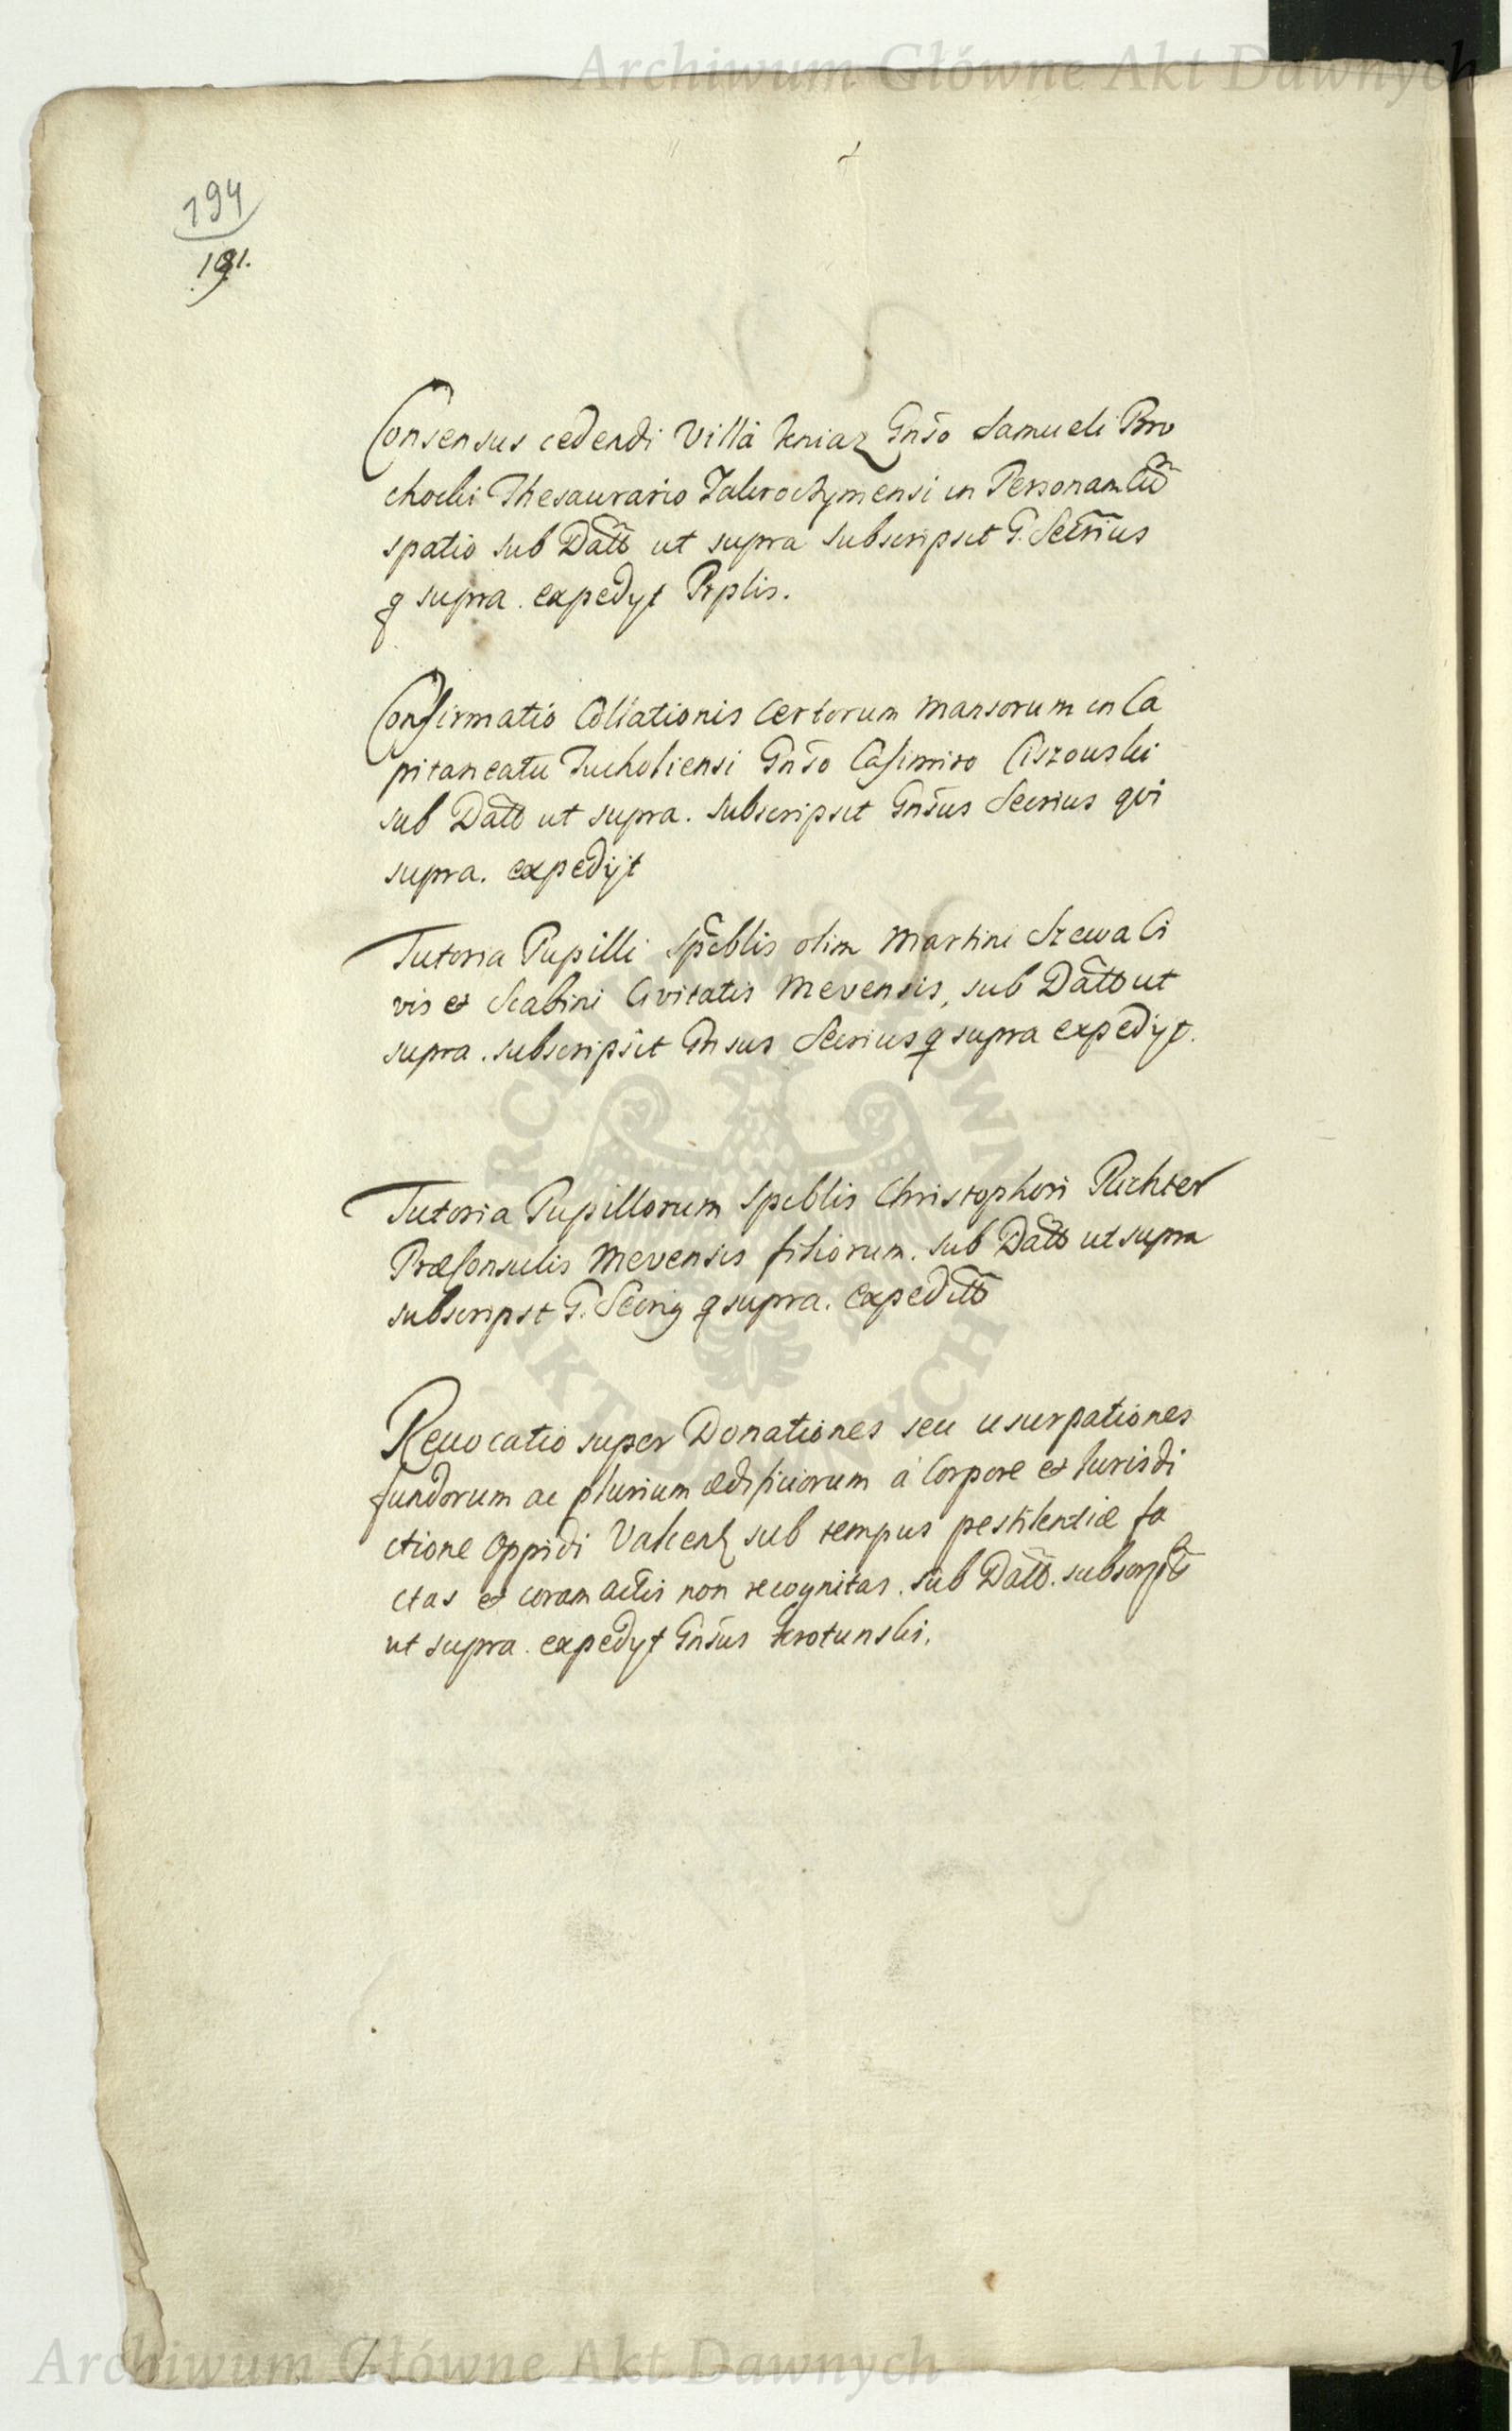 Archiwum Główne Akt Dawnych
194
191.
Consensus cedendi Villa Kniaz Gnso Samueli Pro
chocki Thesaurario Zakroczymensi in Personam
spatio sub Datto ut supra subscripsit G. Secrius
q supra. expedyt Pxplis.
Confirmatio Collationis Certorum Mansorum in Ca
pitaneatu Tucholiensi Gnso Casimiro Ciszouski
sub Datto ut supra. subscripsit Gnsus Secrius qvi
supra. expedijt
Tutoria Pupilli Spcblis olim Martini Szewa Ci
vis et Scabini Civitatis Mevensis, sub Datto ut
supra. subscripsit Gnsus Secrius q supra expedyt.
Tutoria Pupillorum Spcblis Christophori Richter
Præconsulis Mevensis filiorum. sub Datto ut supra
subscripst G. Secrig q supra. expeditto
Reuocatio super Donationes seu usurpationes
fundorum ac plurium ædificiorum a Corpore et Iurisdi
ctione Oppidi Valcenz sub tempus pestilentiæ fa
ctas et coram actis non recognitas. sub Datto.
ut supra. expedyt Gnsus Krotunski.
ARCHIWUM GŁÓWNE
AKT DAWNYCH
Archiwum Główne Akt Dawnych